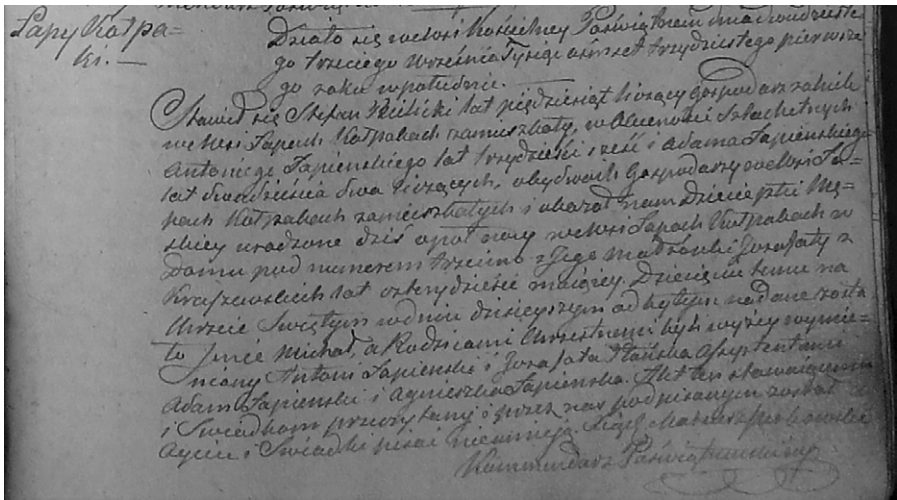 Łapy Kołpa=
ki. —
Działo się we wsi Kościelney Poświątnem dnia dwudzieste
go trzeciego Września Tysiąc ośmset trzydziestego pierwsze
go roku w południe.
Stawił się Stefan lat pięćdziesiąt liczący Gospodarz
we wsi Łapach Kołpakach zamieszkały, w Obecności Szlachetnych
Antoniego Łapieńskiego lat trzydzieści sześć i Adama Łapieńskiego
lat dwadzieścia dwa liczących, obydwóch Gospodarzy we wsi Ła=
pach Kołpakach zamieszkałych i okazał nam Dziecie płci Mę=
skiey urodzone dziś o północy we wsi Łapach Kołpakach w
Domu pod numerem trzecim z Jego Małżonki Jozafaty z
lat czterdzieście maiącey. Dziecięciu temu na
Chrzcie Swiętym w dniu dzisieyszym odbytym nadane zosta
ło Jmie Michał, a Rodzicami Chrzestnemi byli wyżey wymie=
niony Antoni Łapieński i Jozafata Assystentami
Adam Łapieński i Agnieszka Łapieńska. Akt ten stawaiącemu
i Swiadkom przeczytany i przez nas podpisanym został
Oyciec i Swiadki pisać nieumieją. Mateusz
Kommendarz